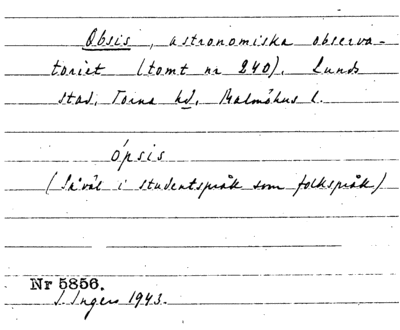 Obsis, astronomiska observa-
toriet (tomt nr 240). Lunds
stad, Torna hd, Malmöhus l.
ópsis
(Såväl i studentspråk som folkspråk)
Nr 5856.
I. Ingers 1943.